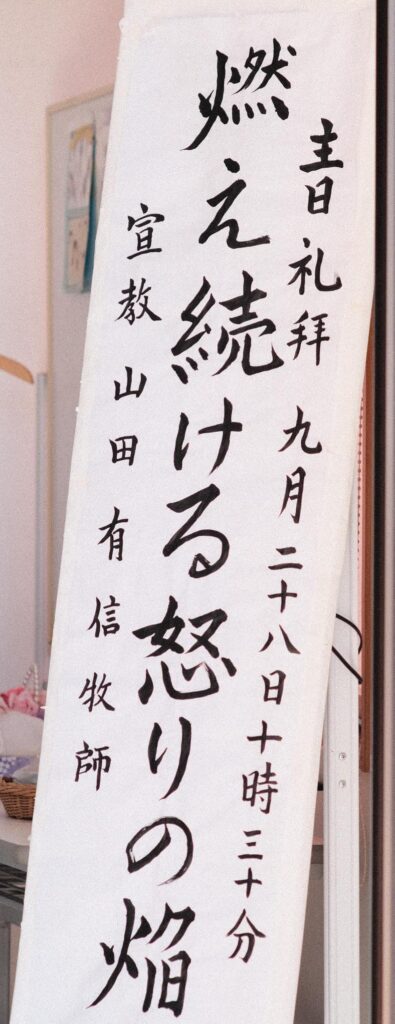 主日礼拝 九月二十八日十時三十分
燃え続ける怒りの焔
宣教 山田有信牧師